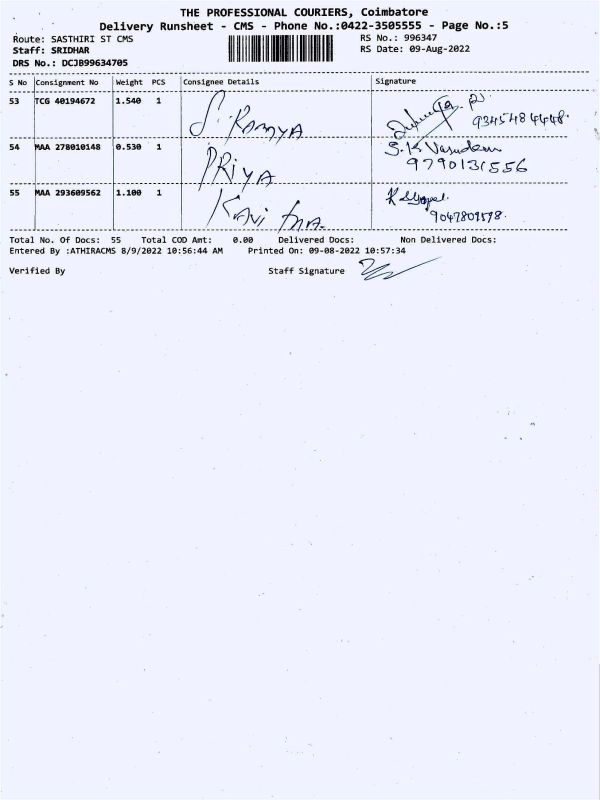 THE PROFESSIONAL COURIERS, Coimbatore
Delivery Runsheet - CMS - Phone No.:0422-3505555 - Page No.:5
Route: SASTHIRI ST CMS
Staff: SRIDHAR
DRS No.: DCJB99634705
RS No.: 996347
RS Date: 09-Aug-2022
S No Consignment No Weight PCS Consignee Details Signature
53 TCG 40194672 1.540 1 S. RAMYA
9345484448.
54 MAA 278010148 0.530 1 PRiYA S.K Vasudevan
9790131556
55 MAA 293609562 1.100 1 KAVi
9047809578.
Total No. Of Docs: 55 Total COD Amt: 0.00 Delivered Docs: Non Delivered Docs:
Entered By :ATHIRACMS 8/9/2022 10:56:44 AM Printed On: 09-08-2022 10:57:34
Verified By Staff Signature